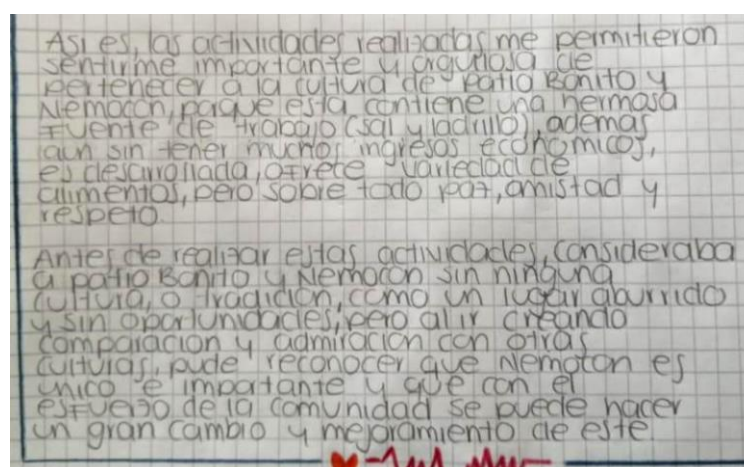 Asi es, las actividades realizadas me permitieron
sentirme importante y orgullosa de
pertenecer a la cultura de Patio Bonito y
Nemocón, porque esta contiene una hermosa
Fuente de trabajo (sal y ladrillo), ademas
aun sin tener muchos ingresos económicos,
es desarrollada, ofrece variedad de
alimentos, pero sobre todo paz, amistad y
respeto.
Antes de realizar estas actividades, consideraba
a patio Bonito y Nemocón sin ninguna
cultura, o tradición, como un lugar aburrido
y sin oportunidades, pero al ir creando
comparación y admiración con otras
culturas, pude reconocer que Nemocón es
unico e importante y que con el
esfuerzo de la comunidad se puede hacer
un gran cambio y mejoramiento de este